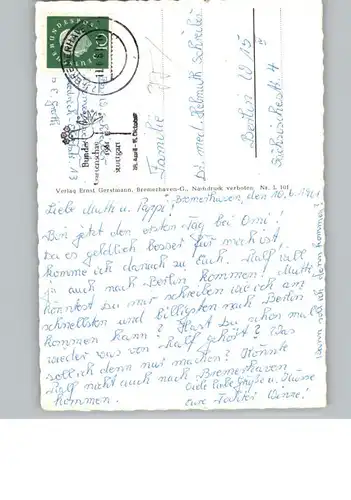 DEUTSCHE BUNDESPOST
BREMERHAVEN
Bundes
Gartenschau
1961
Stuttgart
28. April - 11. Oktober
Familie
Dr. med. Helmuth Schreiber
Berlin W 15
Verlag Ernst Gerstmann, Bremerhaven-G., Nachdruck verboten, Nr. L 101
Bremerhaven den 10.6.1961
Liebe Mutti u. Pappi!
Bin jetzt den ersten Tag bei Omi!
Da es geldlich besser für mich ist
komme ich danach zu Euch. Ralf will
ja auch nach Berlin kommen! Mutti,
könntest Du mir schreiben wie ich am
schnellsten und billigsten nach Berlin
kommen kann? Hast Du schon mal
wieder was von Ralf gehört? Was
soll ich denn nur machen? Könnte
Ralf nicht auch nach Bremerhaven
kommen.
Viele liebe Grüße u. Küsse
Eure Tochter
wann soll ich denn kommen?